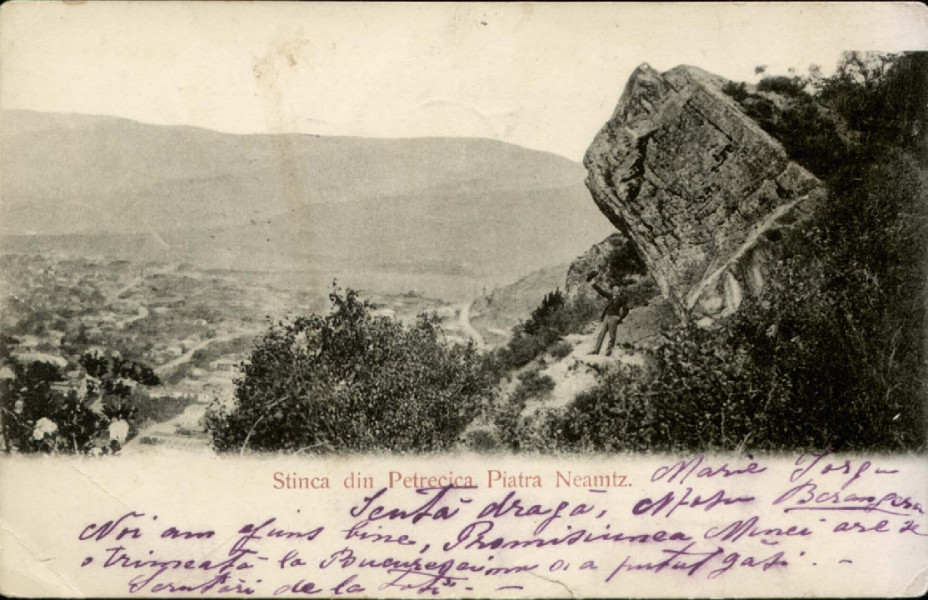 Stinca din Petrecica Piatra Neamtz.
Marie Iorgu
Scută dragă, Moșu Berangeru
Noi am ajuns bine, Promisiunea Minei are se
o trimeată la București nu o a putut găsi. -
Scrutări de la toți. -